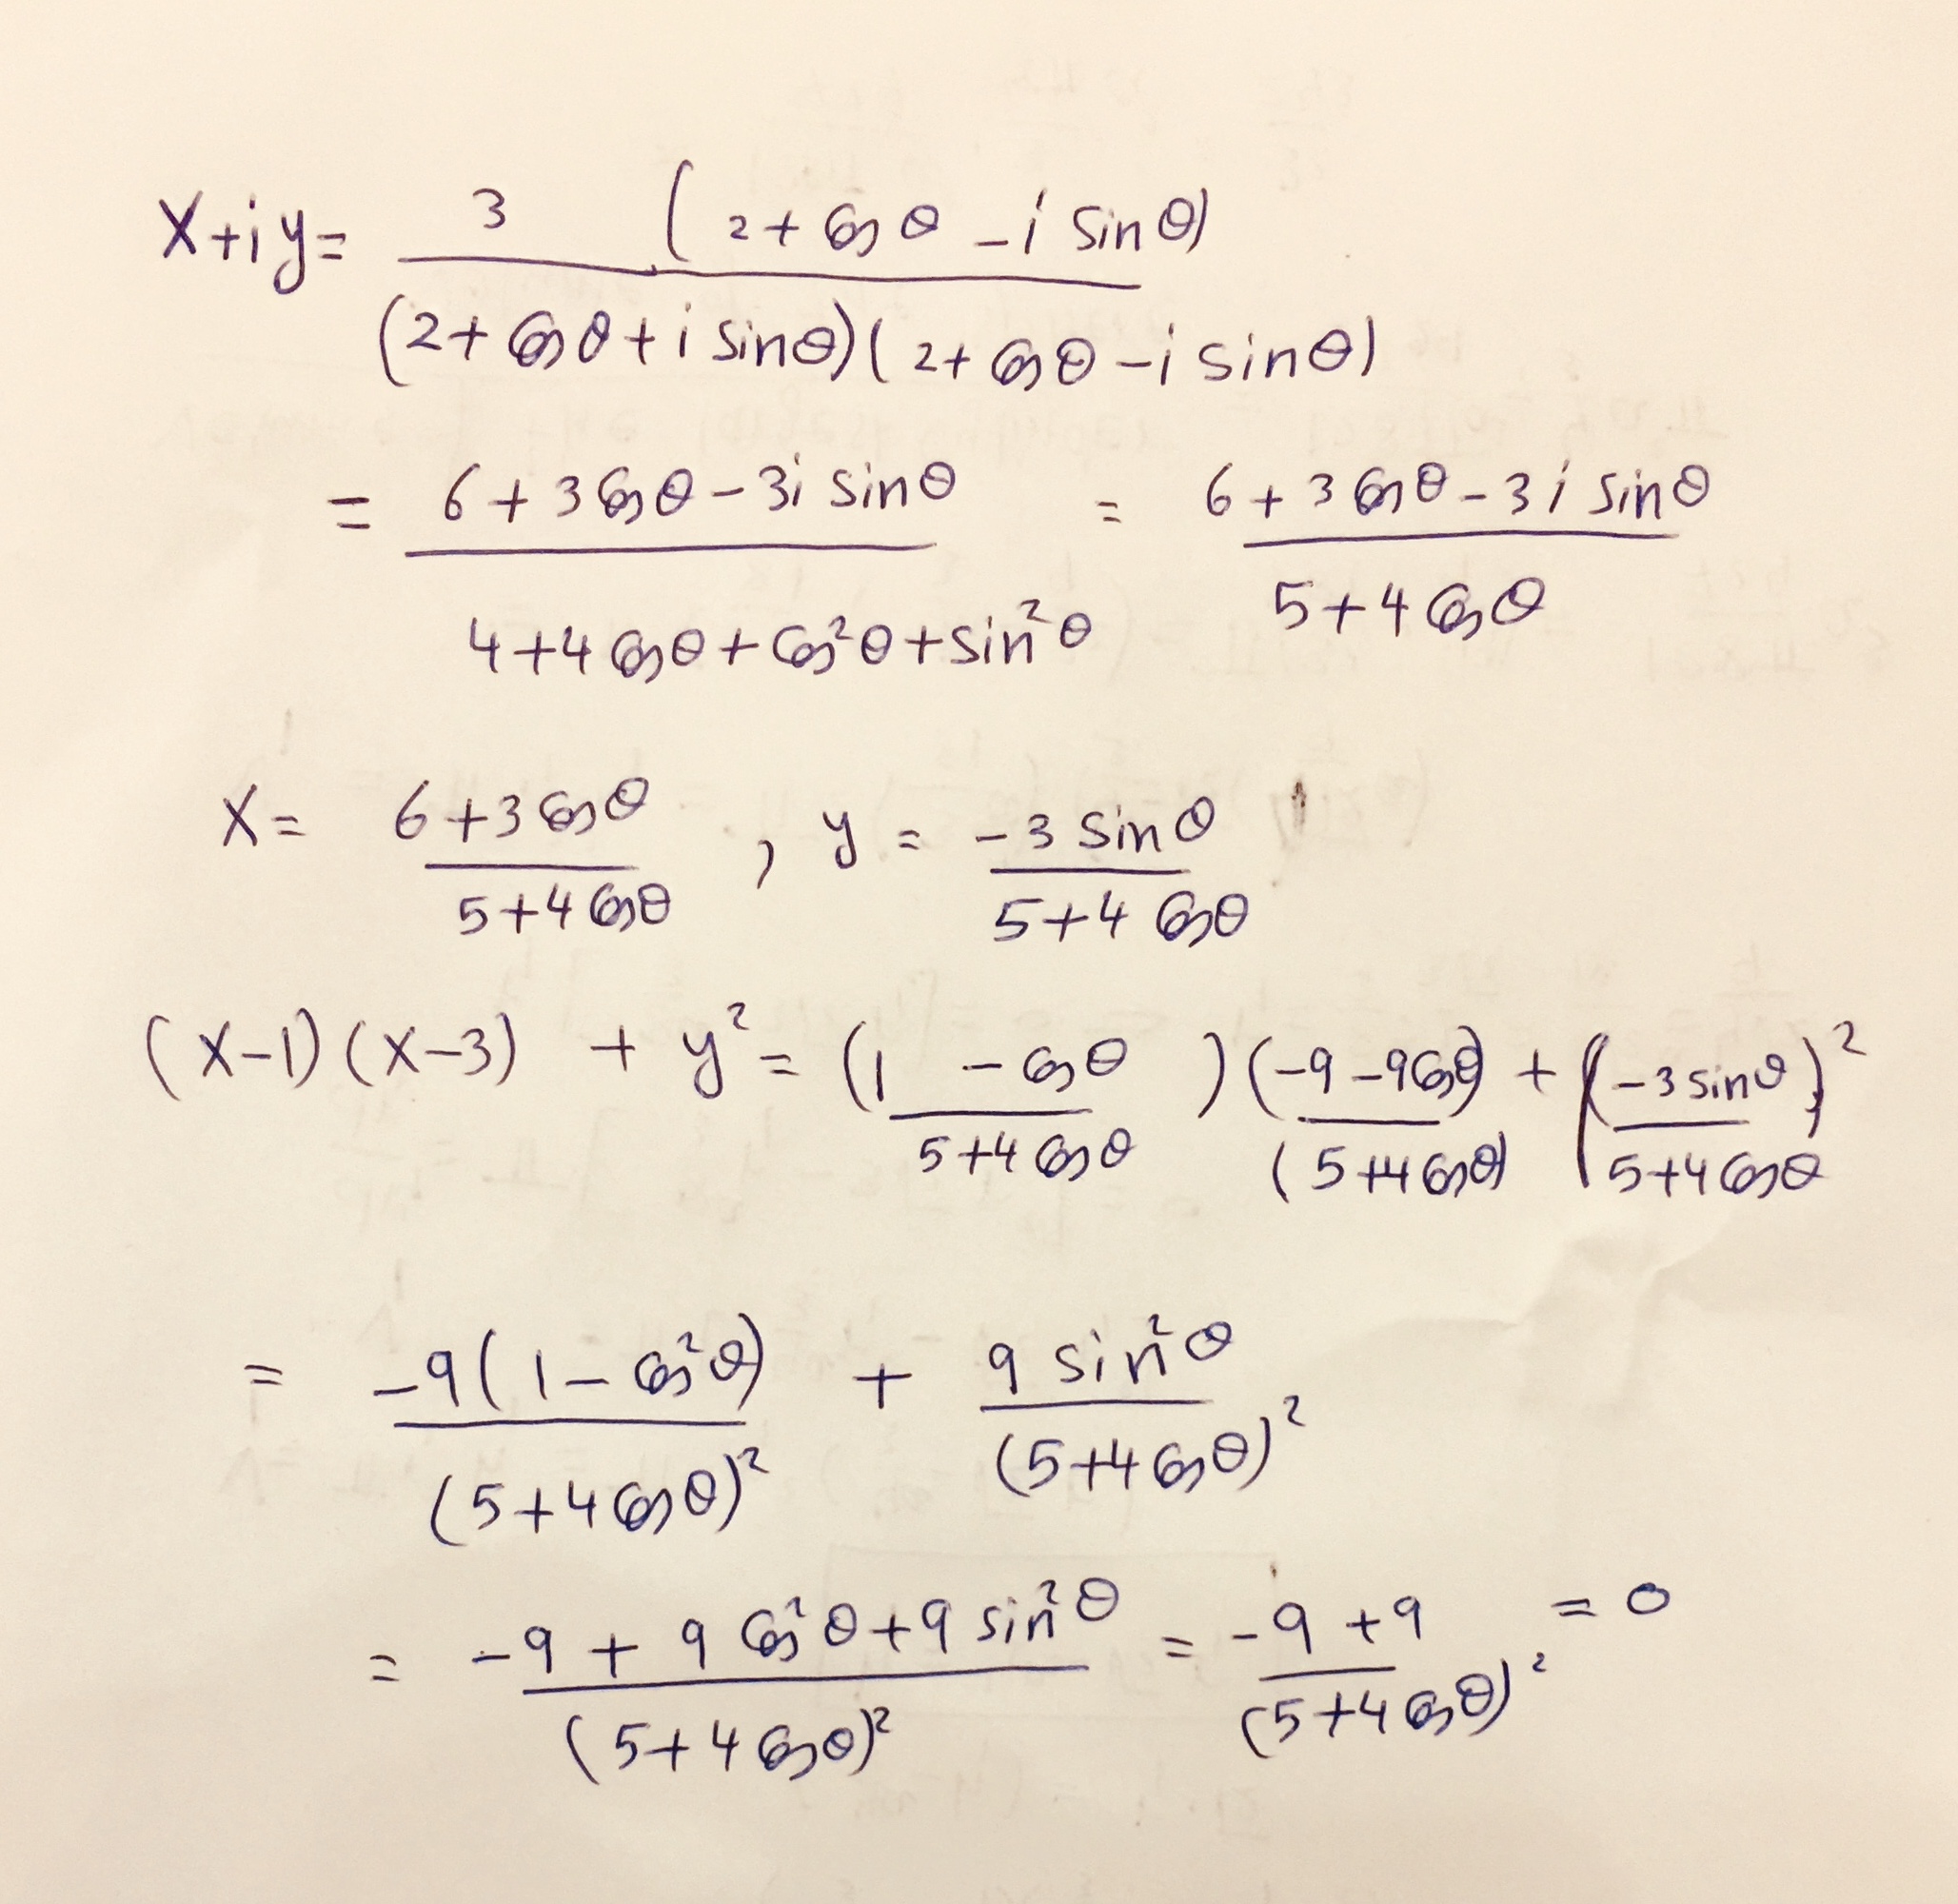 x+iy = 3 (2+cosθ -i sinθ) / (2+cosθ+i sinθ)(2+cosθ-i sinθ)
= 6+3cosθ-3i sinθ / 4+4cosθ+cos²θ+sin²θ = 6+3cosθ-3i sinθ / 5+4cosθ
x= 6+3cosθ / 5+4cosθ , y = -3 sinθ / 5+4cosθ
(x-1)(x-3) + y² = (1 -cosθ / 5+4cosθ)(-9-9cosθ) / (5+4cosθ) + (-3 sinθ / 5+4cosθ)²
= -9(1-cos²θ) / (5+4cosθ)² + 9 sin²θ / (5+4cosθ)²
= -9 + 9cos²θ+9 sin²θ / (5+4cosθ)² = -9+9 / (5+4cosθ)² = 0